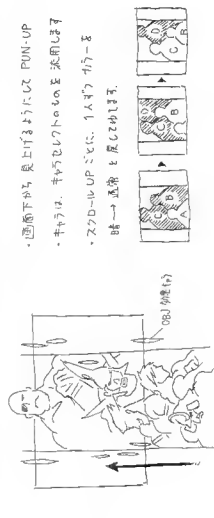 ・画面下から見上げるようにして PUN-UP
・キャラは、キャラセレクトのものを流用します
・スクロールUPごとに、1人ずつカラーを
暗→通常と戻して行きます。
A
B
C
D
B
C
D
B
C
D
OBJ